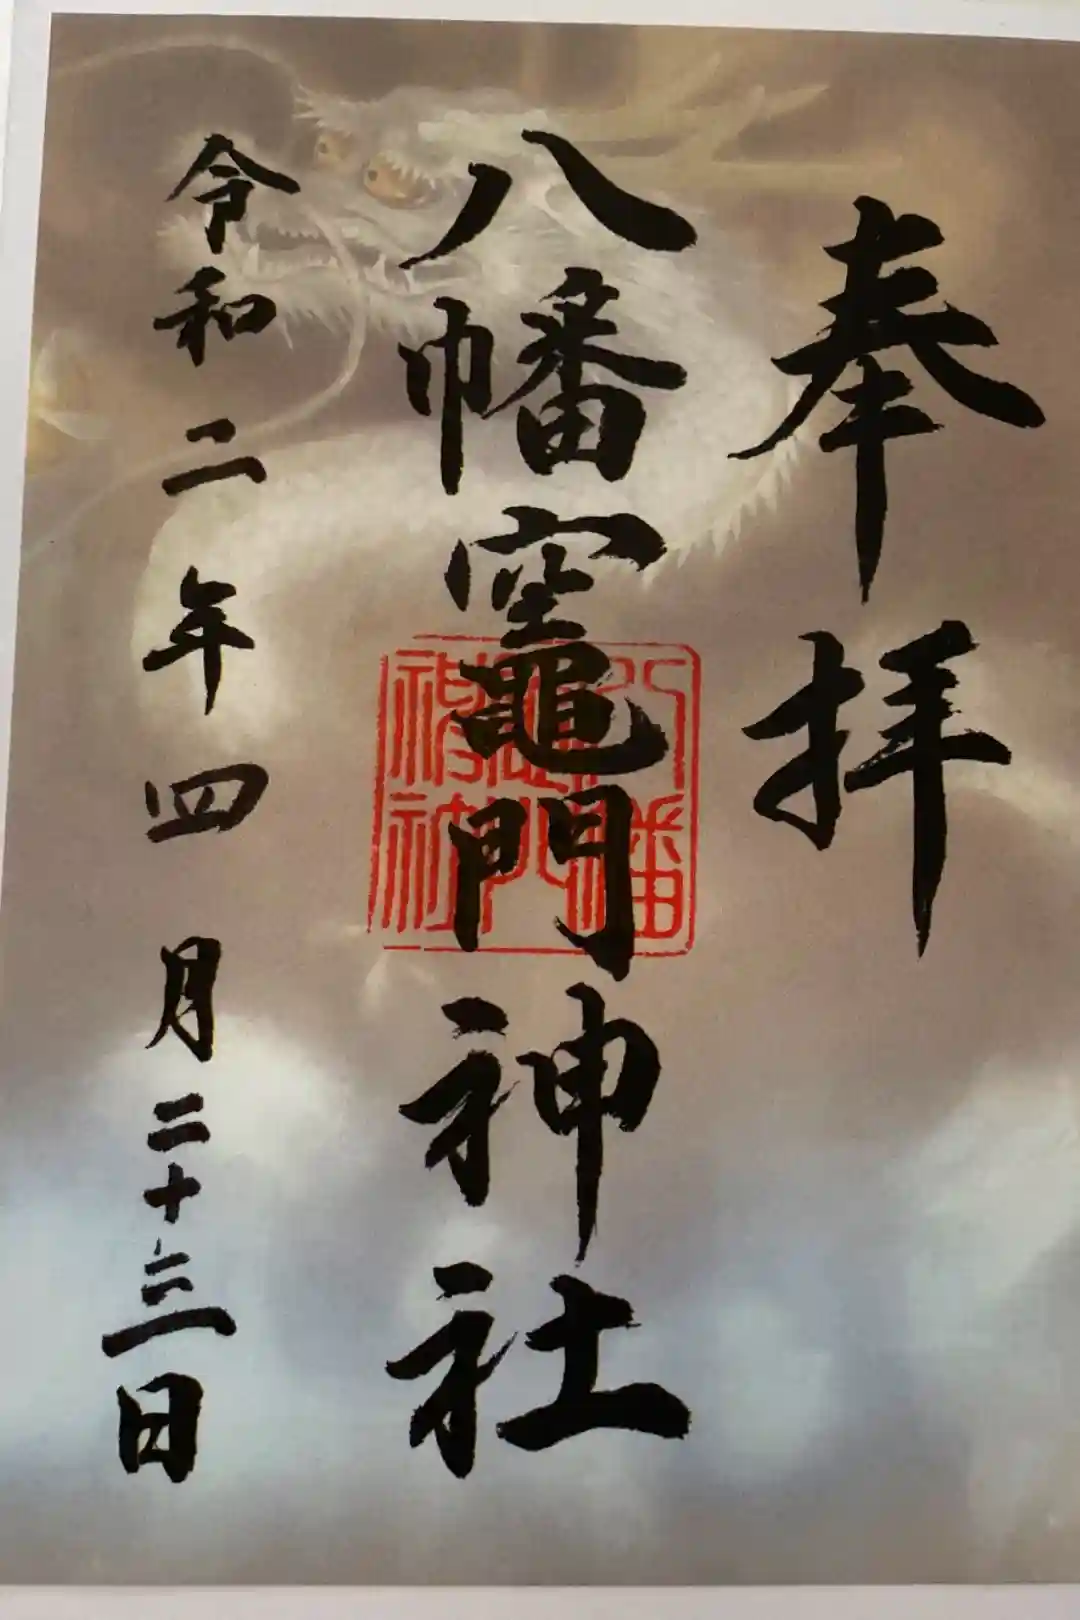 奉拝
八幡竈門神社
令和二年四月二十三日
八幡
竈門
神社